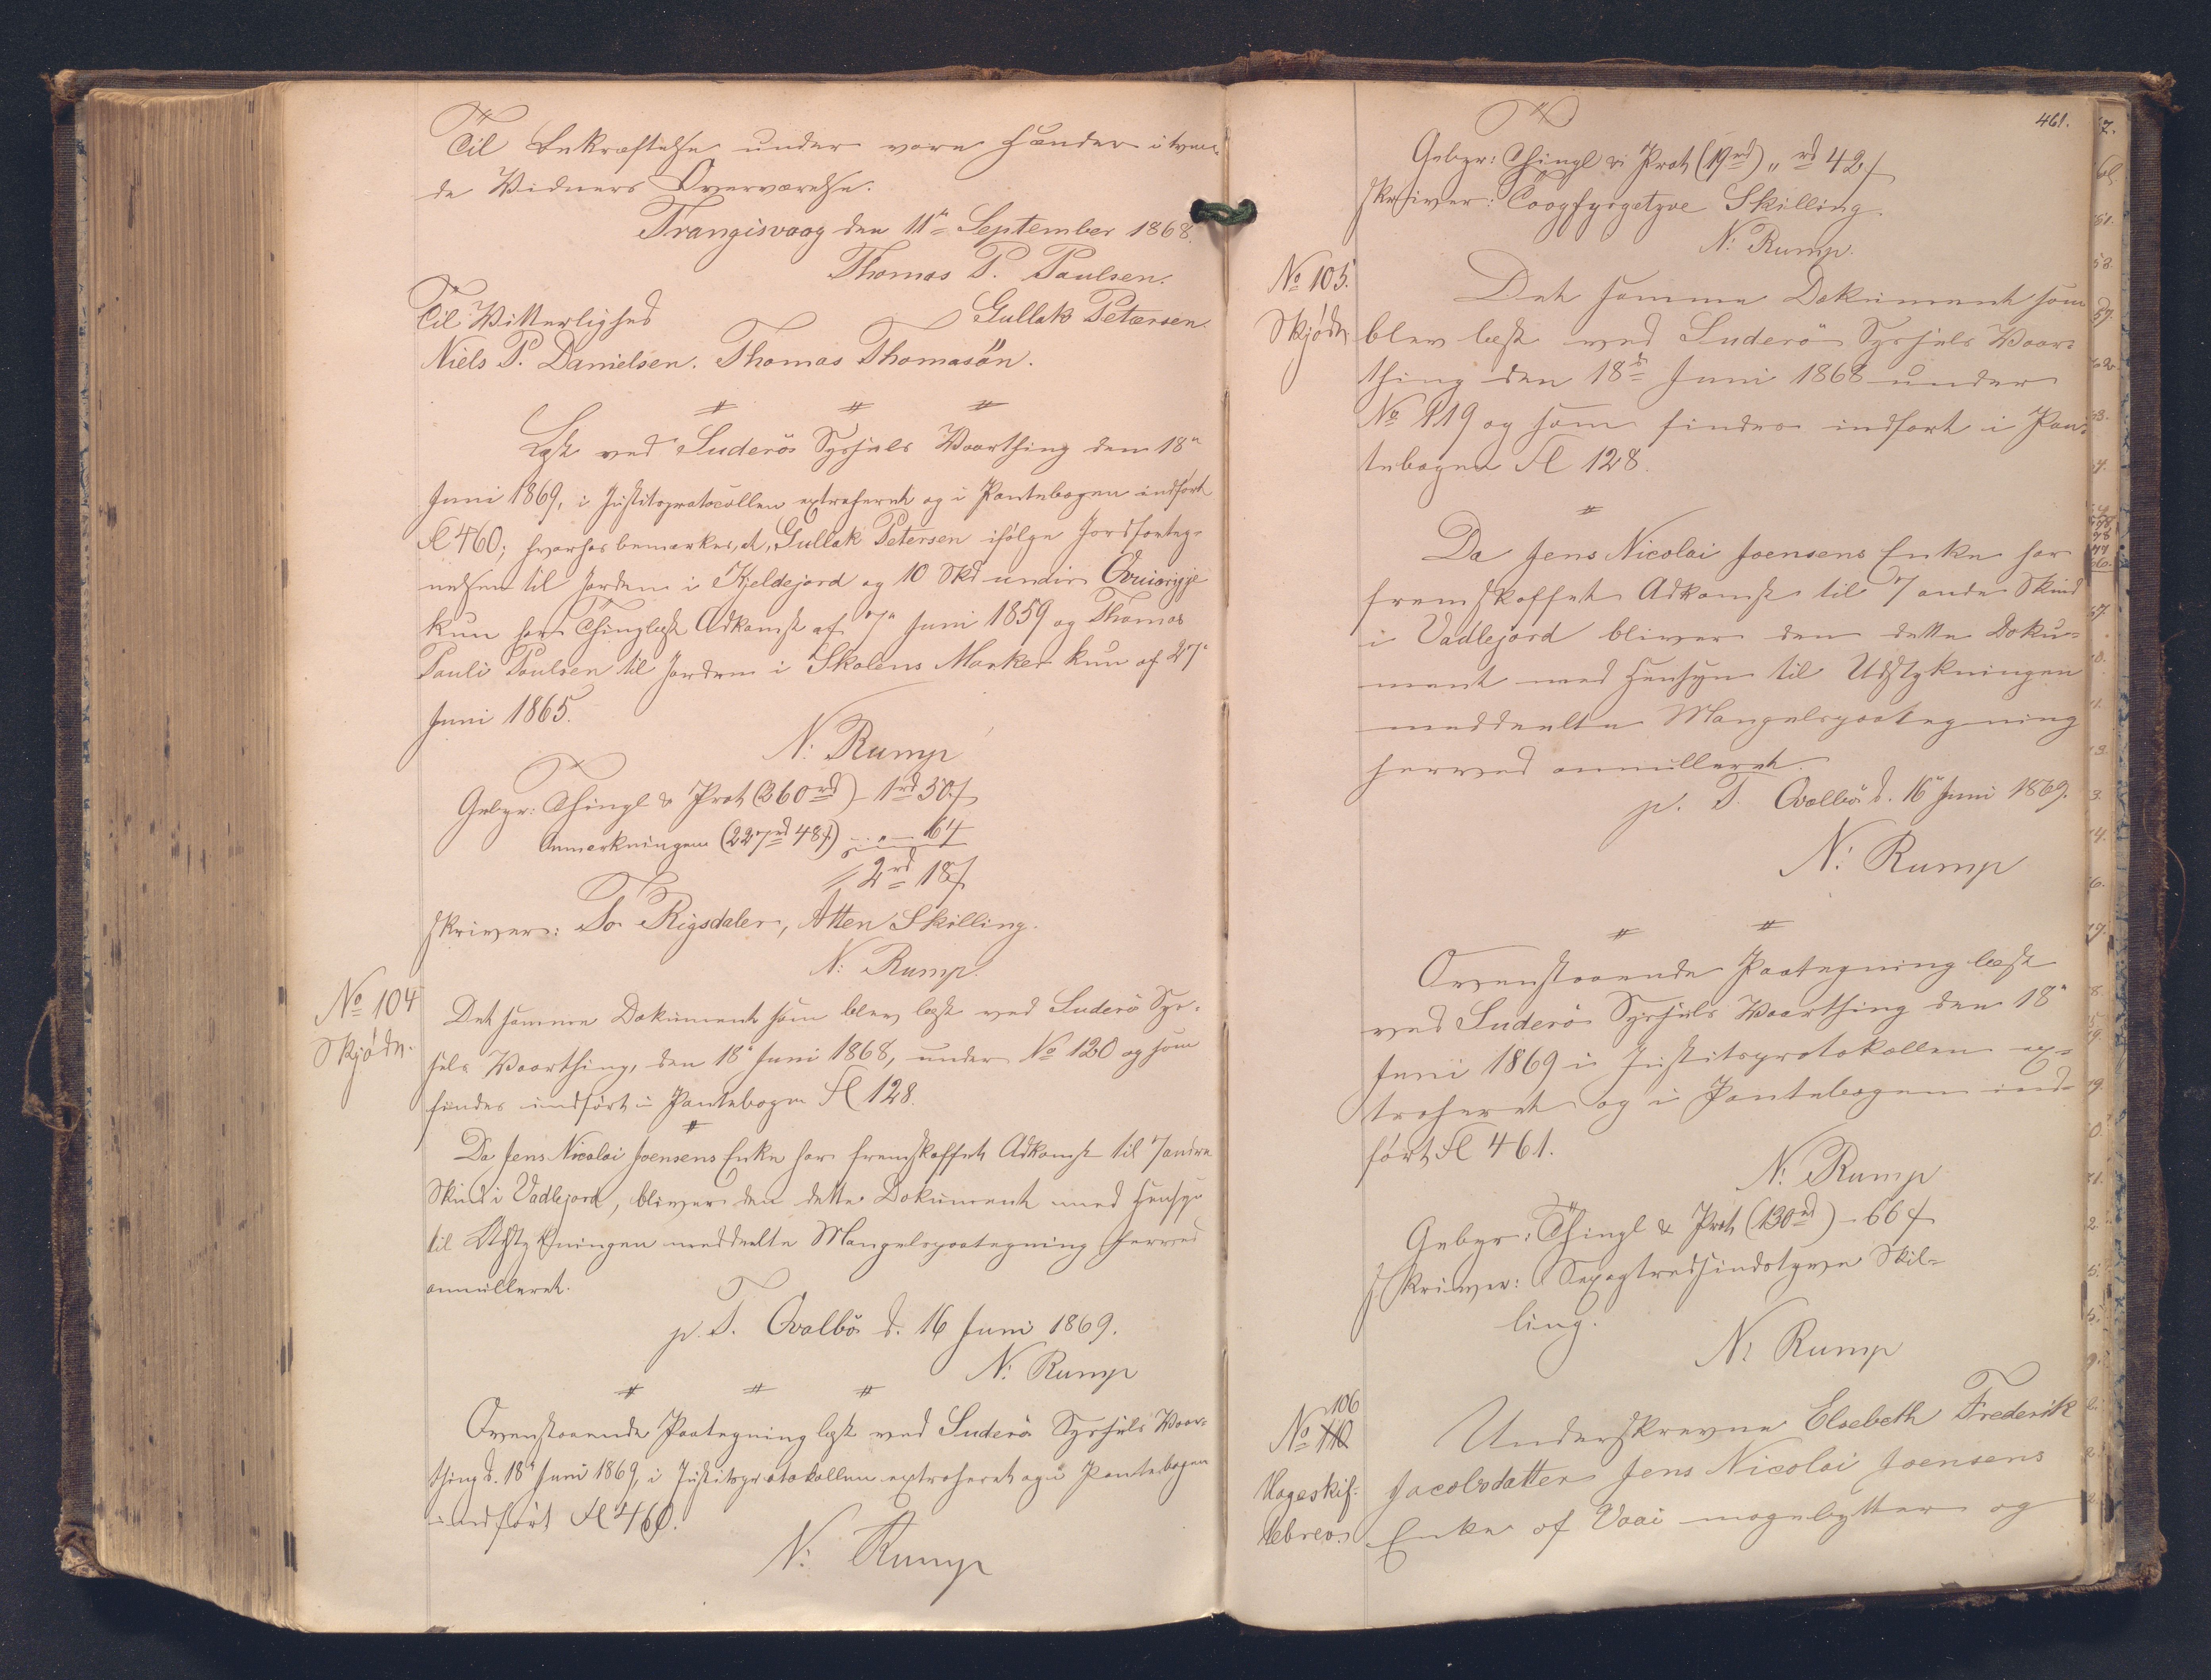 Til Bekræftelse under vore Hænder i tven-
de Vidners Overværelse.
Trangisvaag den 11te September 1868.
Thomas P. Paulsen.
Til Vitterlighed
Gullak Petersen.
Niels P. Danielsen. Thomas Thomasön.
Læst ved Suderö Syssels Vaarthing den 18de
Juni 1869, i Justitsprotocollen extraheret og i Pantebogen indført
Fl 460; hvorhos bemærkes, at, Gullak Petersen ifølge Jordforteg-
nelsen til Jorden i Kjeldejord og 10 Skd undir
kun har Thinglæst Adkomst af 7de Juni 1859 og Thomas
Pauli Paulsen til Jorden i Skolens Marker kun af 27de
Juni 1865.
N: Rump
Gebyr: Thingl & Prot (260 rd) - 1 rd 50 s
Anmærkningen (227 rd 48 s) - " - 64
2 rd 18 s
skriver: To Rigsdaler, Atten Skilling.
N: Rump.
No 104
Skjøde.
Det samme Dokument som blev læst ved Suderö Sys-
sels Vaarthing, den 18de Juni 1868, under No 120 og som
findes indført i Pantebogen Fl 128.
Da Jens Nicolai Joensens Enke har fremskaffet Adkomst til 7 andre
Skind i Vadlejord, bliver den dette Dokument med Hensyn
til Udstykningen meddeelte Mangelspaategning herved
annulleret.
p. T. Qvalbö d. 16 Juni 1869.
N: Rump
Ovenstaaende Paategning læst ved Suderö Syssels Vaar-
thing d. 18de Juni 1869, i Justitsprotokollen extraheret og i Pantebogen
indført Fl 460.
N: Rump
461.
Gebyr: Thingl & Prot (19 rd) " rd 42 s
skriver: Toogfyrgetyve Skilling.
N: Rump.
No 105.
Skjøde.
Det samme Dokument som
blev læst ved Suderö Syssels Vaar-
thing den 18de Juni 1868 under
No 119 og som findes indført i Pan-
tebogen Fl 128.
Da Jens Nicolai Joensens Enke har
fremskaffet Adkomst til 7 andre Skind
i Vadlejord bliver den dette Doku-
ment med Hensyn til Udstykningen
meddeelte Mangelspaategning
herved annulleret.
p. T. Qvalbö d. 16de Juni 1869.
N: Rump
Ovenstaaende Paategning læst
ved Suderö Syssels Vaarthing den 18de
Juni 1869 i Justitsprotokollen ex-
traheret og i Pantebogen ind-
ført Fl 461.
N: Rump
Gebyr: Thingl & Prot (130 rd) - 66 s
skriver: Sexogtredsindstyve Skil-
ling.
N: Rump
106
No 110
Mageskif-
tebrev.
Underskrevne Elsebeth Frederik
Jacobsdatter Jens Nicolai Joensens
Enke af Vaai magebytter og